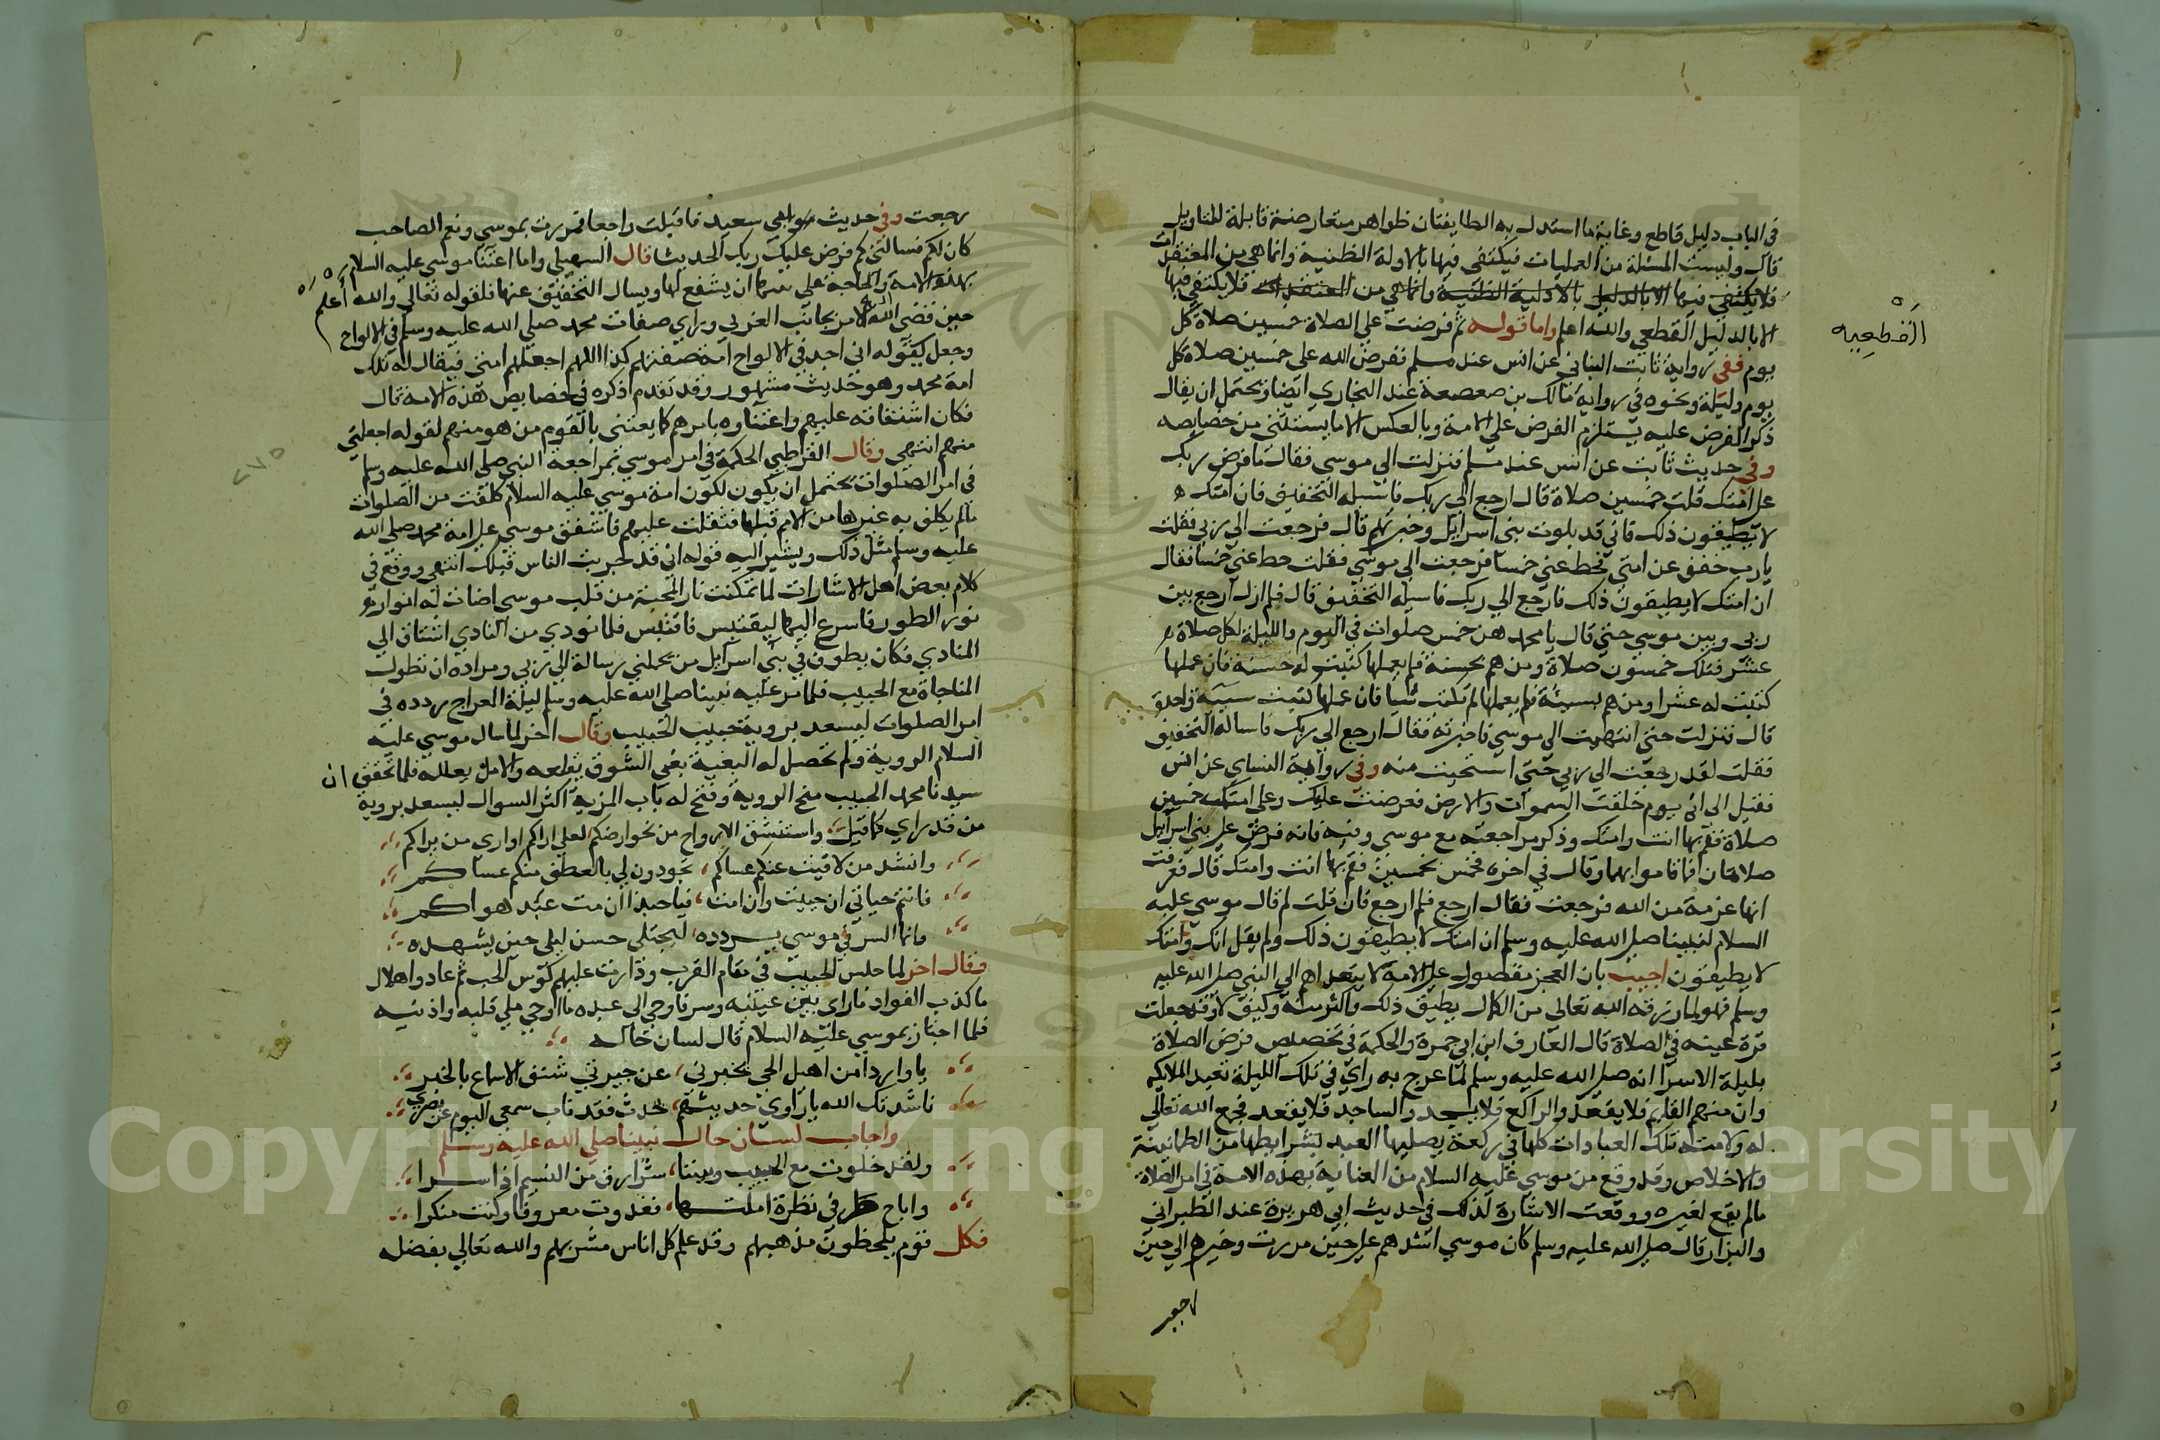 في الباب دليل قاطع وغاية ما استدل به الطايفتان ظواهر متعارضة قابلة للتاويل
قال وليست المسئلة من العمليات فيكتفى فيها بالادلة الظنية وانما هي من المعتقدات
فلا يكتفي فيها الا بالدليل بالادلية الظنية وانما هي من المعتقدات فلا يكتفي فيها
القطعيه
الا بالدليل القطعي والله اعلم واما قوله ثم فرضت علي الصلاة خمسين صلاة كل
يوم ففي رواية ثابت البناني عن انس عند مسلم ففرض الله علي خمسين صلاة كل
يوم وليلة ونحوه في رواية مالك بن صعصعة عند البخاري ايضا ويحتمل ان يقال
ذكر الفرض عليه يستلزم الفرض علي الامة وبالعكس الا ما يستثني من خصايصه
وفي حديث ثابت عن انس عند مسلم فنزلت الي موسي فقال ما فرض ربك
علي امتك قلت خمسين صلاة قال ارجع الي ربك فاسئله التخفيف فان امتك
لا يطيقون ذلك فاني قد بلوت بني اسرايل وخبرتهم قال فرجعت الي ربي فقلت
يا رب خفف عن امتي فحط عني خمسا فرجعت الي موسي فقلت حط عني خمسا فقال
ان امتك لا يطيقون ذلك فارجع الي ربك فاسيله التخفيف قال فلم ازل ارجع بين
ربي وبين موسي حتي قال يا محمد هن خمس صلوات في اليوم والليلة لكل صلاة
عشر فتلك خمسون صلاة ومن هم بحسنة فلم يعملها كتبت له حسنة فان عملها
كتبت له عشرا ومن هم بسيئة فلم يعملها لم تكتب شيا فان عملها كتبت سيية واحدة
قال فنزلت حتي انتهيت الي موسي فاخبرته فقال ارجع الي ربك فاساله التخفيف
فقلت لقد رجعت الي ربي حتي استحيت منه وفي رواية النساي عن انس
فقيل لي اني يوم خلقت السموات والارض فرضت عليك وعلي امتك خمسين
صلاة فقم بها انت وامتك وذكر مراجعته مع موسي وفيه فانه فرض علي بني اسرايل
صلاتان فما قاموا بهما وقال في اخره فخمس بخمسين فقم بها انت وامتك قال فعرفت
انها عزمة من الله فرجعت فقال ارجع فلم ارجع فان قلت لم قال موسي عليه
السلام لنبينا صلي الله عليه وسلم ان امتك لا يطيقون ذلك ولم يقل انك وامتك
لا يطيقون اجيب بان العجز مقصور علي الامة لا يتعداهم الي النبي صلي الله عليه
وسلم فهو لما رزقه الله تعالي من الكمال يطيق ذلك واكثر منه وكيف لا وقد جعلت
قرة عينه في الصلاة قال العارف ابن ابي جمرة والحكمة في تخصيص فرض الصلاة
بليلة الاسرا انه صلي الله عليه وسلم لما عرج به راي في تلك الليلة تعبد الملايكة
وان منهم القايم فلا يقعد والراكع فلا يسجد والساجد فلا يقعد فجمع الله تعالي
له ولامته تلك العبادات كلها في ركعة يصليها العبد بشرايطها من الطمانينة
والاخلاص وقد وقع من موسي عليه السلام من العناية بهذه الامة في امر الصلاة
ما لم يقع لغيره ووقعت الاشارة لذلك في حديث ابي هريرة عند الطبراني
والبزار قال صلي الله عليه وسلم كان موسي اشدهم علي حين مررت وخيرهم الي حين
رجعت وفي حديث ابي سعيد فاقبلت راجعا فمررت بموسي ونعم الصاحب
كان لكم فسالني كم فرض عليك ربك الحديث قال السهيلي واما اعتنا موسي عليه السلام
بهذه الامة والحاجه علي نبيها ان يشفع لها ويسال التخفيف عنها فلقوله تعالي والله أعلم
حين قضي الله اليه الامر بجانب الغربي وراي صفات محمد صلي الله عليه وسلم في الالواح
وجعل يقول اني اجد في الالواح امة صفتهم كذا اللهم اجعلهم امتي فيقال له تلك
امة محمد وهو حديث مشهور وقد تقدم اذكره في خصايص هذه الامة قال
فكان اشفاقه عليهم واعتناوه بامرهم كما يعتني بالقوم من هو منهم لقوله اجعلني
منهم انتهي وقال القرطبي الحكمة في امر موسي بمراجعة النبي صلي الله عليه وسلم
في امر الصلوات يحتمل ان يكون لكون امة موسي عليه السلام كلفت من الصلوات
ما لم يكلف به غيرها من الامم قبلها فثقلت عليهم فاشفق موسي علي امة محمد صلي الله
٢٧٥
عليه وسلم مثل ذلك ويشير اليه قوله اني قد جربت الناس قبلك انتهي ووقع في
كلام بعض اهل الاشارات لما تمكنت نار المحبة من قلب موسي اضات له انوار
نور الطور فاسرع اليها ليقتبس فاقتبس فلما نودي من النادي اشتاق الي
المنادي فكان يطوف في بني اسرايل من يحملني رسالة الي ربي ومراده ان تطول
المناجاة مع الحبيب فلما مر عليه نبينا صلي الله عليه وسلم ليلة المعراج ردده في
امر الصلوات ليسعد بروية حبيب الحبيب وقال اخر لما سال موسي عليه
السلام الروية ولم تحصل له البغية بقي الشوق يقلقه والامل يعلله فلما تحقق ان
سيدنا محمد الحبيب منح الروية وفتح له باب المزية اكثر السوال ليسعد بروية
من قد راي كما قيل واستنشق الارواح من نحو ارضكم لعلي اراكم او اري من يراكم
وانشد من لاقيت عنكم عساكم تجودون لي بالعطف منكم عساكم
فانتم حياتي ان حييت وان امت فيا حبذا ان مت عبد هواكم
وانما السر في موسي يردده ليجتلي حسن ليلي حين يشهده
وقال اخر لما جلس الحبيب في مقام القرب ودارت عليهم كوس الحب ثم عاد وهلال
ما كذب الفواد ما راي بين عينيه وسر فاوحي الي عبده ما اوحي ملي قلبه واذنيه
فلما اجتاز بموسي عليه السلام قال لسان حاله
يا واردا من اهيل الحي يخبرني عن جيرتي شنف الاسماع بالخبر
ناشدتك الله يا راوي حديثهم حدث فقد ناب سمعي اليوم عن بصري
واجاب لسان حال نبينا صلي الله عليه وسلم
ولقد خلوت مع الحبيب وبيننا سر ارق من النسيم اذا سرا
واباح طرفي نظرة املتها فغدوت معروفا وكنت منكرا
فكل قوم يلحظون مذهبهم وقد علم كل اناس مشربهم والله تعالي بفضله
Copyright © King Saud University